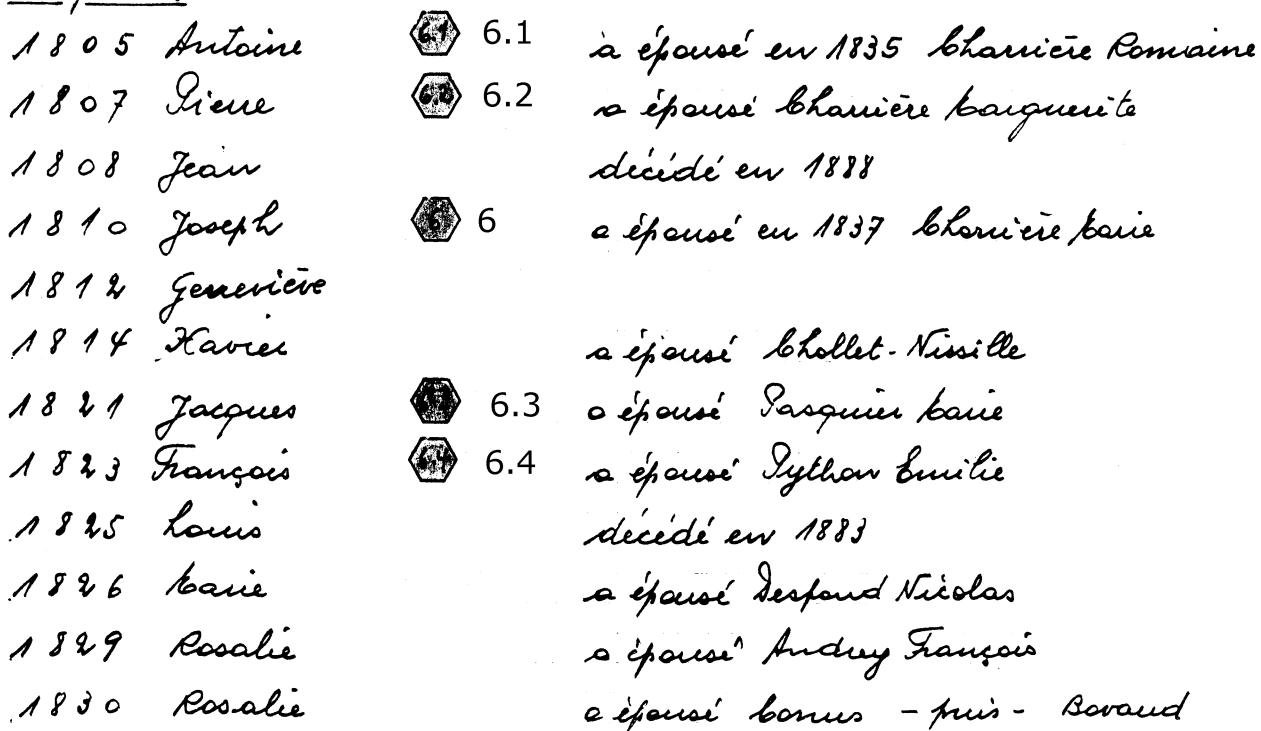 1805 Antoine 6.1 6.1 a épousé en 1835 Charrière Romaine
1807 Pierre 6.2 6.2 a épousé Charrière Marguerite
1808 Jean décédé en 1888
1810 Joseph 6 6 a épousé en 1837 Charrière Marie
1812 Geneviève
1814 Xavier a épousé Chollet-Nissille
1821 Jacques 6.3 a épousé Pasquier Marie
1823 François 6.4 6.4 a épousé Python Emilie
1825 Louis décédé en 1883
1826 Marie a épousé Desfond Nicolas
1829 Rosalie a épousé Andrey François
1830 Rosalie a épousé - puis - Bovaud